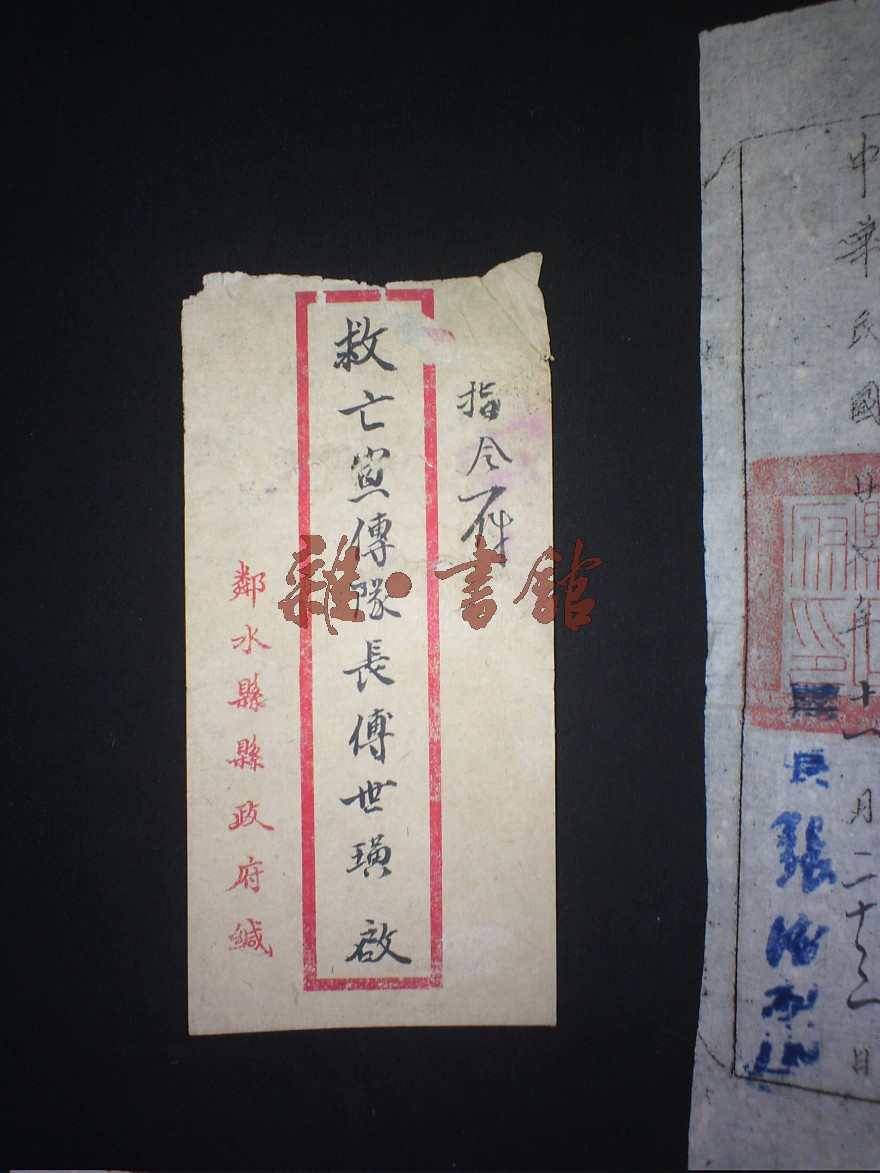 中華民國廿柒年十一月二十三日
縣長張
指令一件
救亡宣傳隊長傅世璜啟
鄰水縣縣政府緘
雜·書館